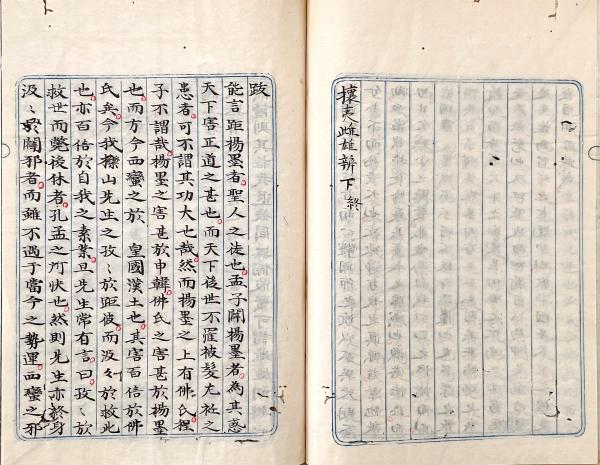 攘夷雌雄辨下終
能言距楊墨者聖人之徒也孟子闢楊墨者為其惑
天下害正道之甚也而天下後世不罹被髮左衽之
患者可不謂其功大也哉然而楊墨之上有佛氏程
子不謂哉楊墨之害甚於申韓佛氏之害甚於楊墨
也而方今西蠻之於 皇國漢土也其害百倍於佛
氏矣今我山先生之孜〻於距彼而汲々於救此
也亦百倍於自我之素業且先生常有言曰孜〻於
救世而斃後休者孔孟之所伏也然則先生亦終身
汲〻於闢邪者而雖不遇于當今之勢運西蠻之邪